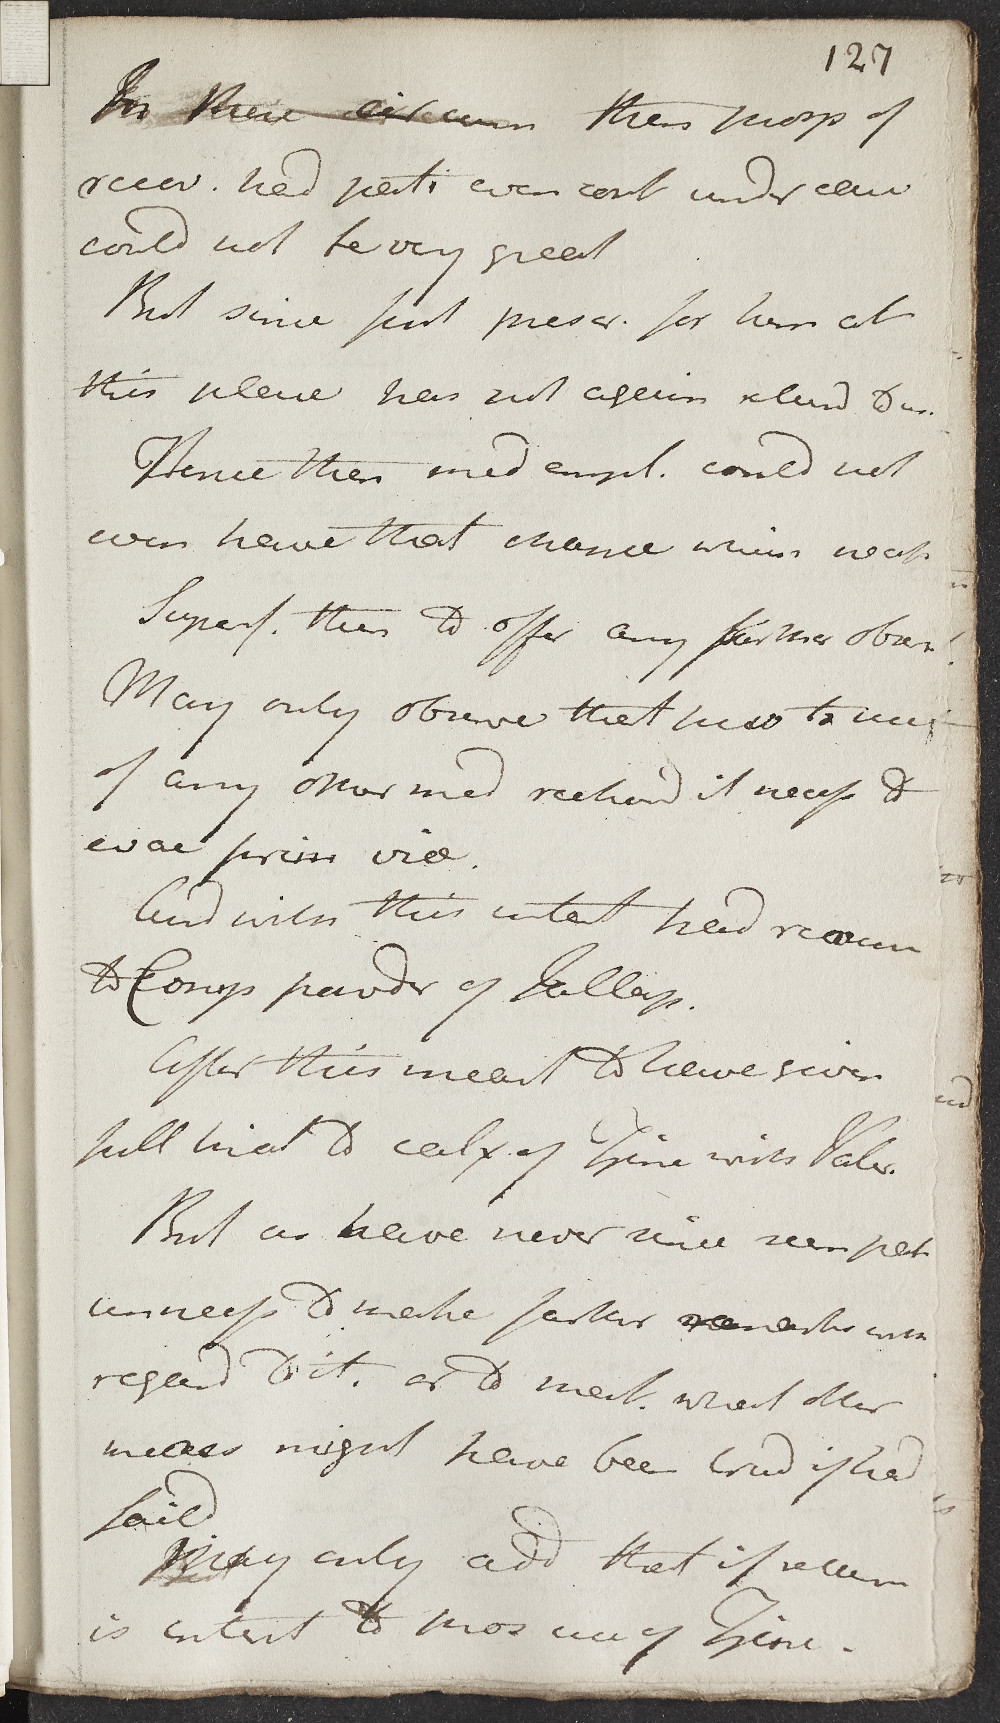 127
In these circum then prosp of
recov. had pati even cont under care
could not be very great
But since first prescr. for him at
this place has not again return'd to us.
Hence then med empl. could not
even have that chance which necess
Superf. then to offer any farther obser
May only observe that prev to use
of any other med reckon'd it necess to
evac prim viæ.
And with this intent had recour
to Comp powder of Jallap.
After this meant to have given
full trial to calx of Zinc with Valer.
But as have never since seen pat
unnecess to make farther remarks with
regard to it. or to ment. what other
meases might have been tried if had
fail'd
May only add that if return
is intent to pros use of Zinc.